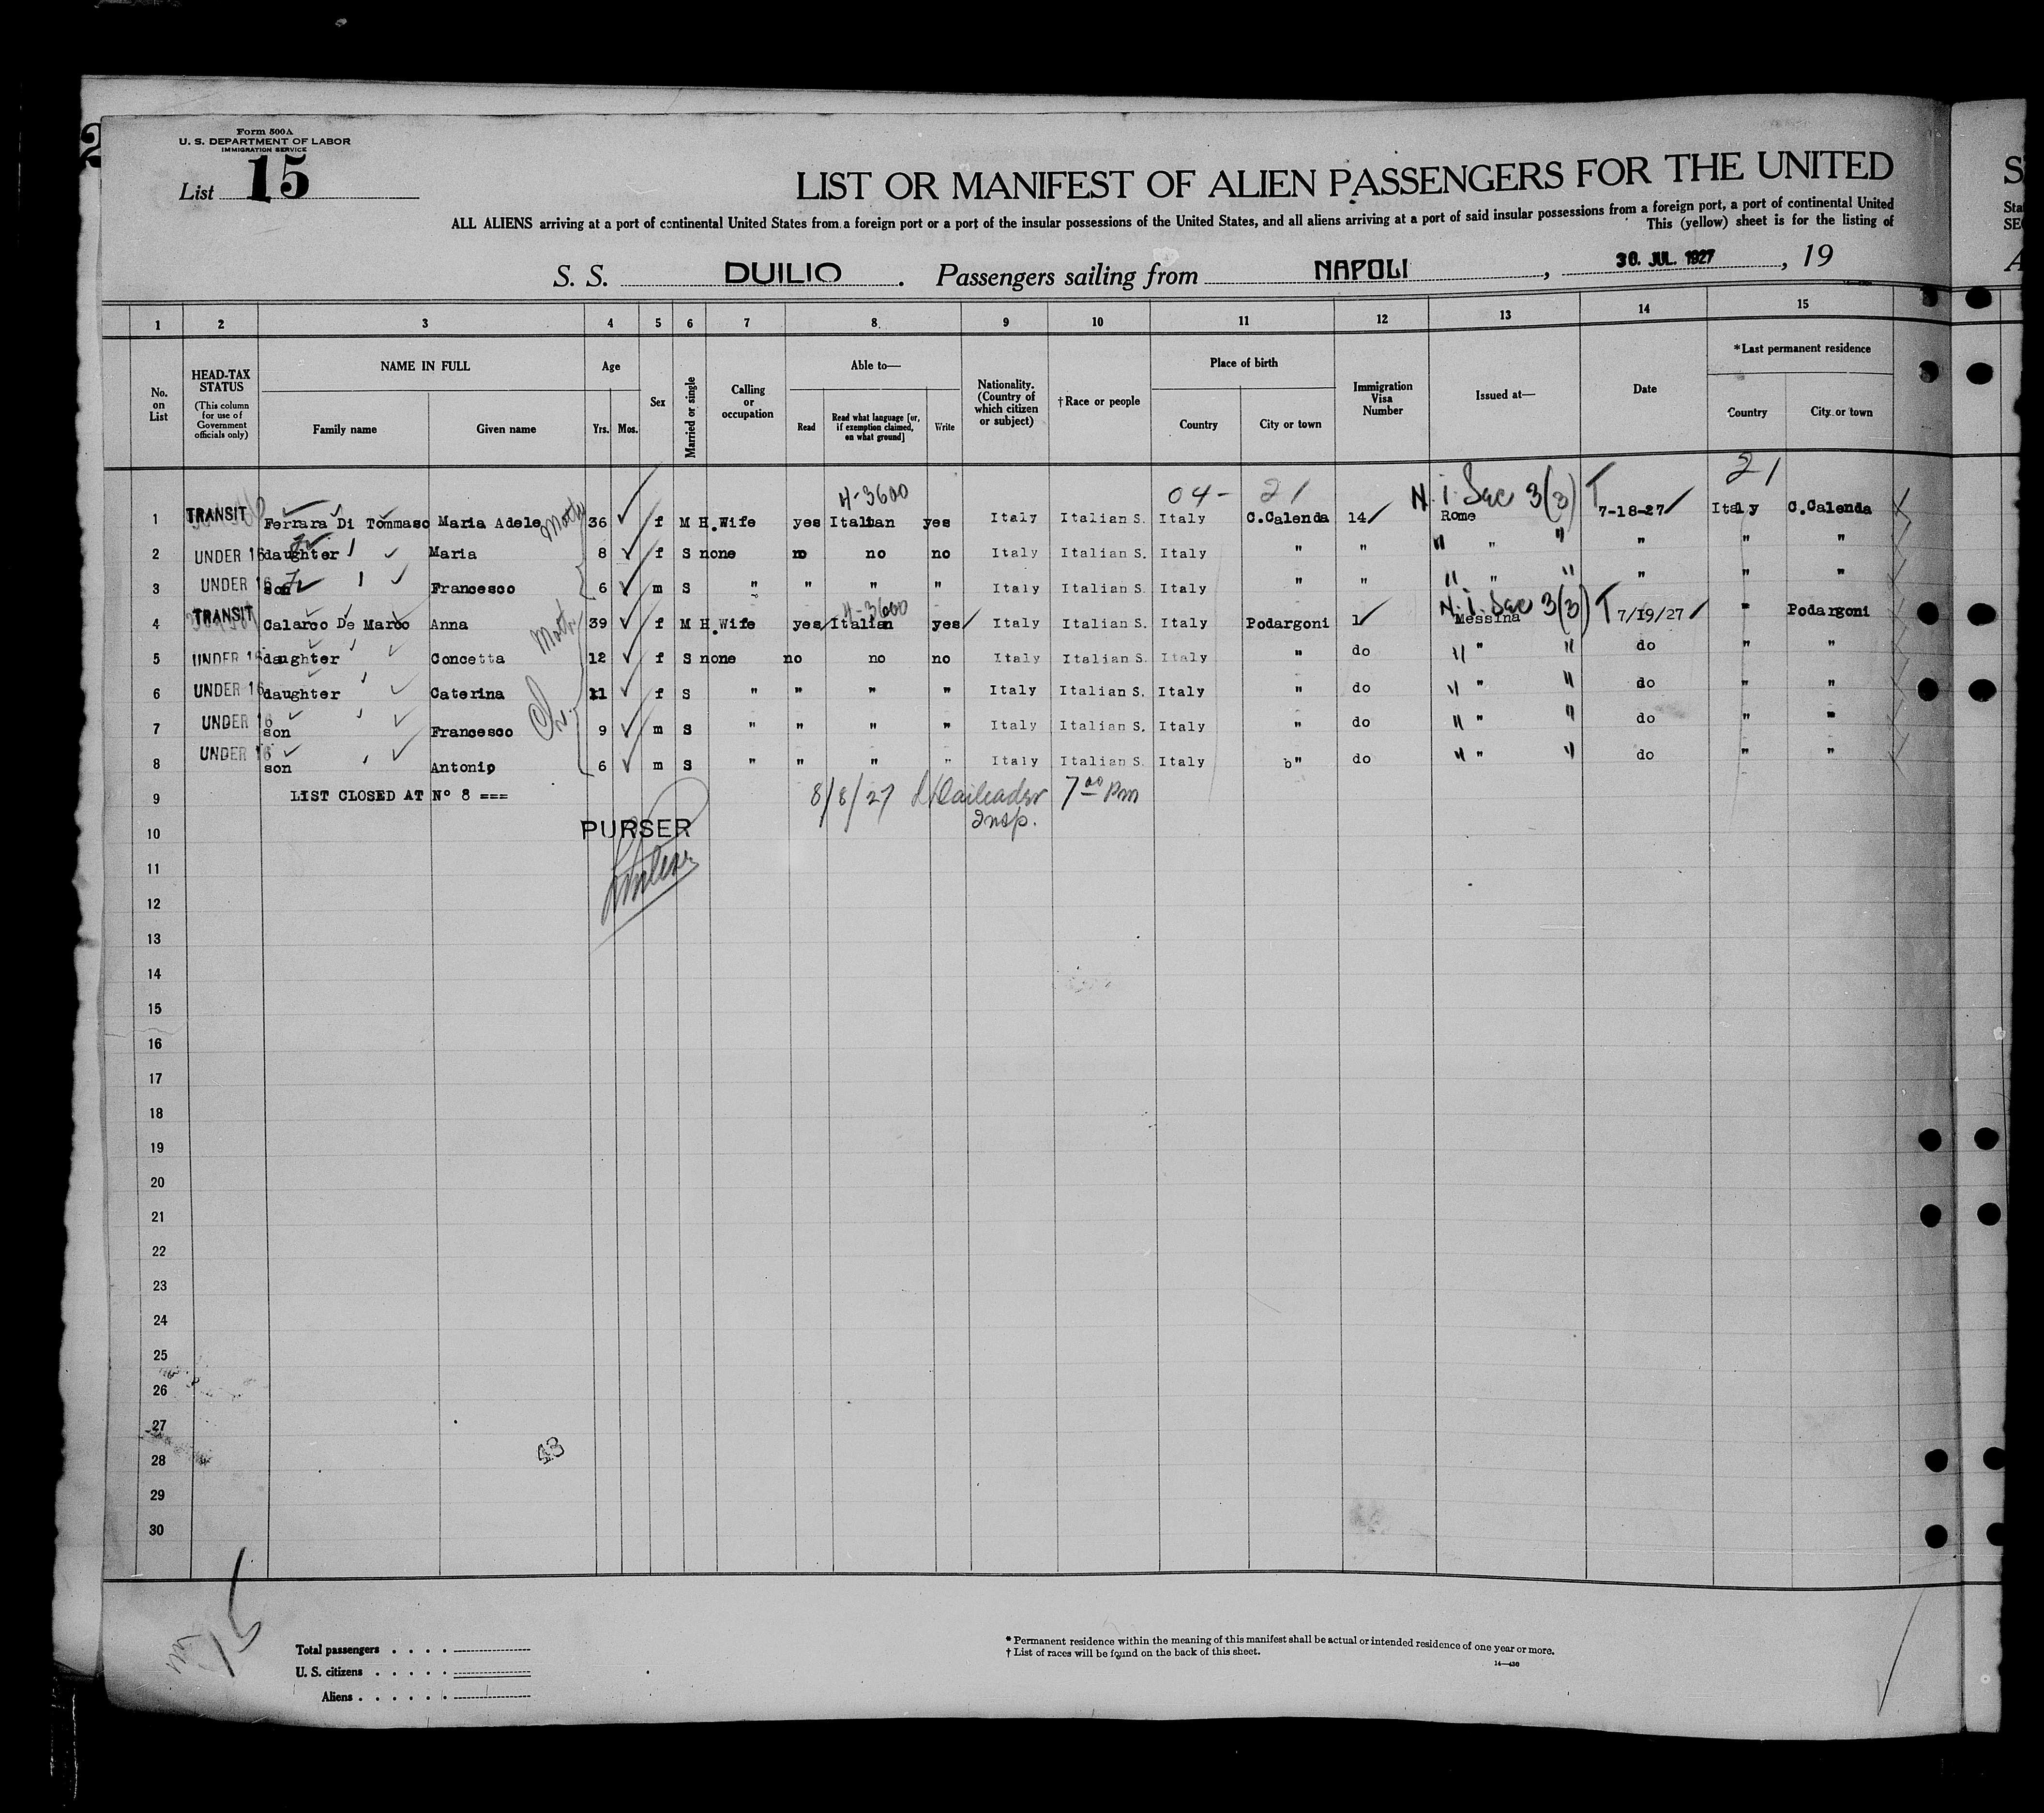 Form 500A
U. S. DEPARTMENT OF LABOR
IMMIGRATION SERVICE
List 15
LIST OR MANIFEST OF ALIEN PASSENGERS FOR THE UNITED
ALL ALIENS arriving at a port of continental United States from a foreign port or a port of the insular possessions of the United States, and all aliens arriving at a port of said insular possessions from a foreign port, a port of continental United
This (yellow) sheet is for the listing of
S. S. DUILIO . Passengers sailing from NAPOLI , 30. JUL. 1927 , 19
1 2 3 4 5 6 7 8 9 10 11 12 13 14 15
No. on List
HEAD-TAX STATUS
(This column for use of Government officials only)
NAME IN FULL
Family name Given name
Age
Yrs. Mos.
Sex
Married or single
Calling or occupation
Able to—
Read Read what language [or, if exemption claimed, on what ground] Write
Nationality. (Country of which citizen or subject)
† Race or people
Place of birth
Country City or town
Immigration Visa Number
Issued at—
Date
*Last permanent residence
Country City or town
4-3600 04- 21 N. i. Sec 3(3) T 21
1 TRANSIT Ferrara Di Tommaso Maria Adele 36 f M H.Wife yes Italian yes Italy Italian S. Italy C.Calenda 14 Rome 7-18-27 Italy C.Calenda
2 UNDER 16 daughter Maria 8 f S none no no no Italy Italian S. Italy " " " " " " " "
3 UNDER 16 son Francesco 6 m S " " " " Italy Italian S. Italy " " " " " " " "
4-3600 N. i. Sec 3(3) T
4 TRANSIT Calarco De Marco Anna 39 f M H.Wife yes Italian yes Italy Italian S. Italy Podargoni 1 Messina 7/19/27 " Podargoni
5 UNDER 16 daughter Concetta 12 f S none no no no Italy Italian S. Italy " do " " " do " "
6 UNDER 16 daughter Caterina 11 f S " " " " Italy Italian S. Italy " do " " " do " "
7 UNDER 16 son Francesco 9 m S " " " " Italy Italian S. Italy " do " " " do " "
8 UNDER 16 son Antonio 6 m S " " " " Italy Italian S. Italy " do " " " do " "
9 LIST CLOSED AT N° 8 === 8/8/27 7 00 Pm
Insp.
10 PURSER
11
12
13
14
15
16
17
18
19
20
21
22
23
24
25
26
27
28
29
30
43
15
Total passengers . . . .
U. S. citizens . . . . .
Aliens . . . . . .
* Permanent residence within the meaning of this manifest shall be actual or intended residence of one year or more.
† List of races will be found on the back of this sheet.
14—430